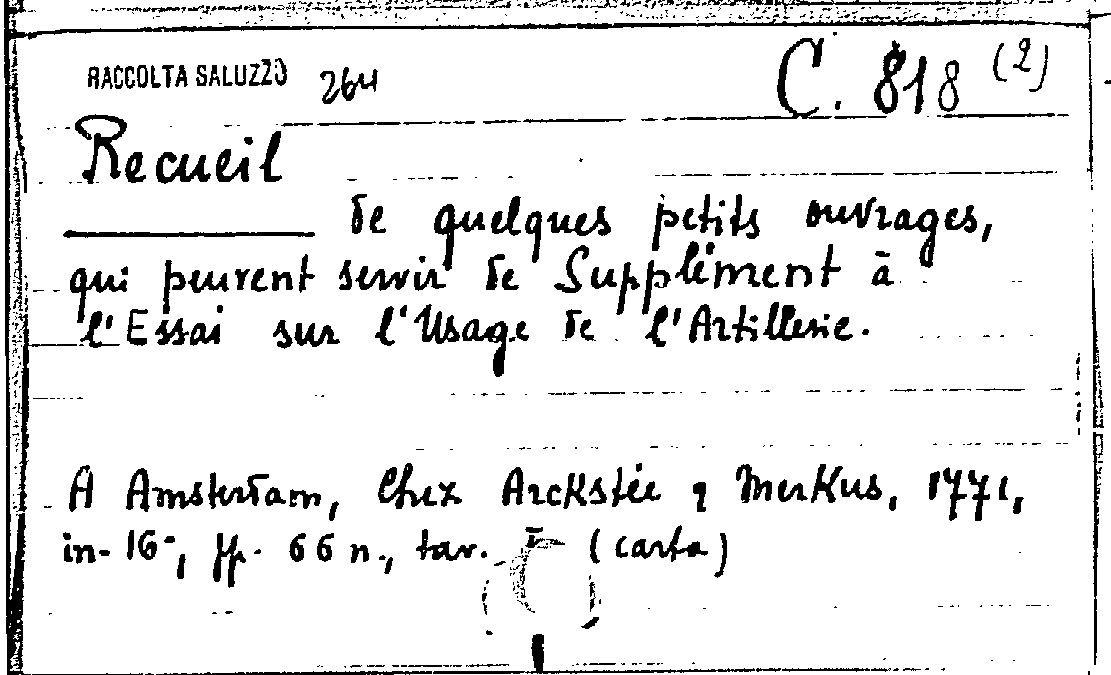 RACCOLTA SALUZZO 264 C. 818 (2)
Recueil
de quelques petits ouvrages,
qui peuvent servir de Supplément à
l'Essai sur l'Usage de l'Artillerie.
A Amsterdam, Chez Arckstée & Merkus, 1771,
in-16°, pp. 66 n., tav. I (carta)